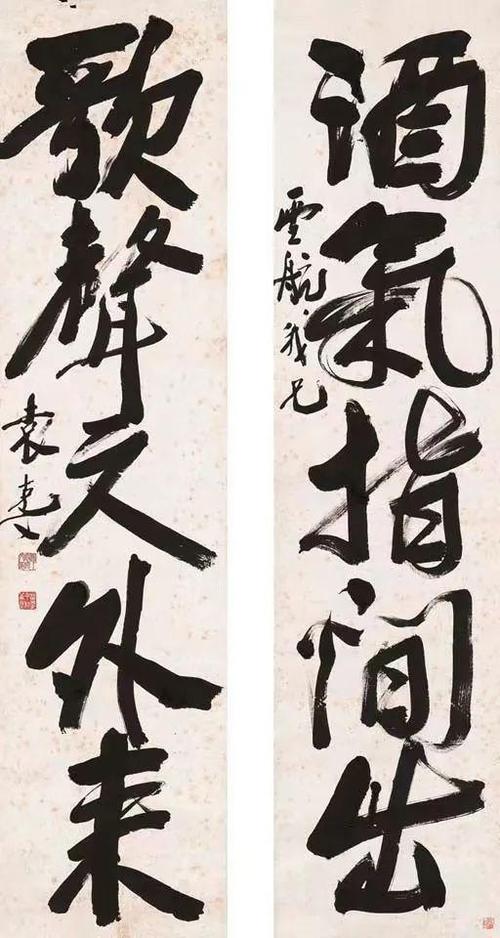 酒氣指間出
雲航我兄
歌聲天外来
袁克文